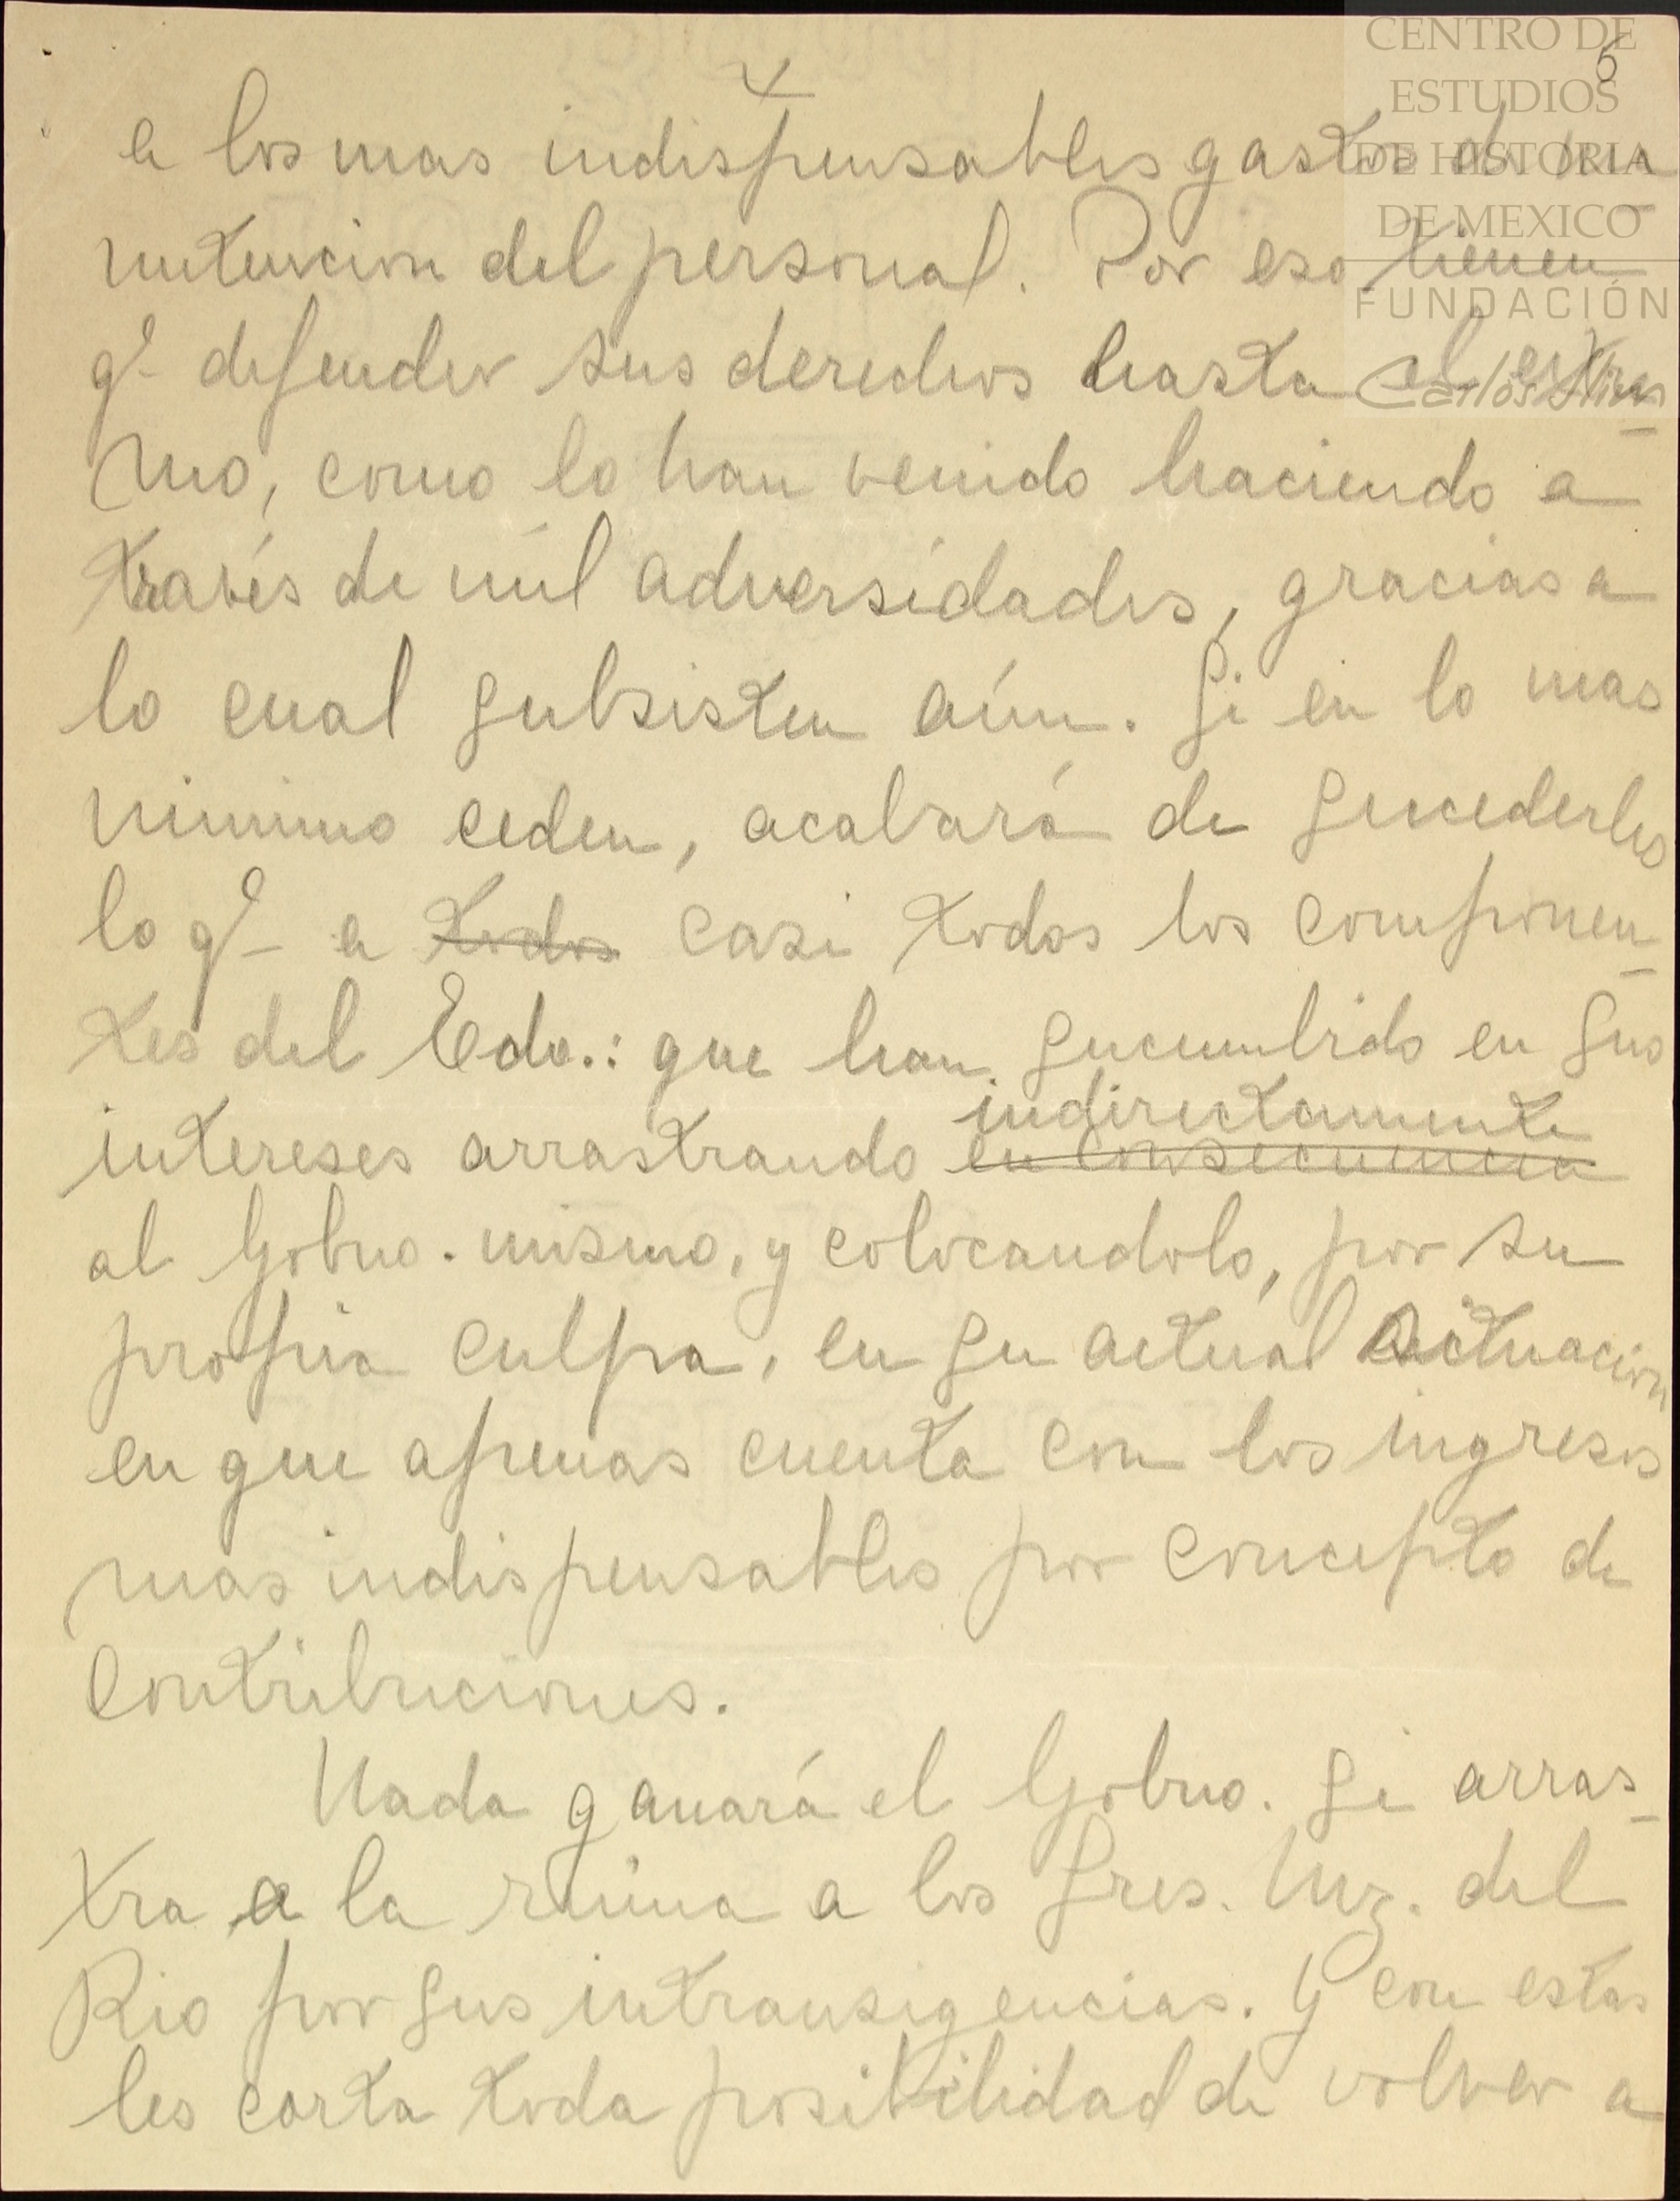 CENTRO DE
ESTUDIOS
DE HISTORIA
DE MEXICO
FUNDACIÓN
Carlos Slim
4
5
a los mas indispensables gastos de ma
nutencion del personal. Por eso tienen
qe defender sus derechos hasta el extre-
mo, como lo han venido haciendo a
través de mil adversidades, gracias a
lo cual subsisten aún. Si en lo mas
minimo ceden, acabará de sucederles
lo qe a todos casi todos los componen-
tes del Edo.: que han sucumbido en sus
indirectamente
intereses arrastrando en consecuencia
al Gobno. mismo, y colocandolo, por su
propia culpa, en su actual actuación
en que apenas cuenta con los ingresos
mas indispensables por concepto de
contribuciones.
Nada ganará el Gobno. si arras-
tra a la ruina a los Sres. Mz. del
Rio por sus intransigencias. Y con estas
les corta toda posibilidad de volver a